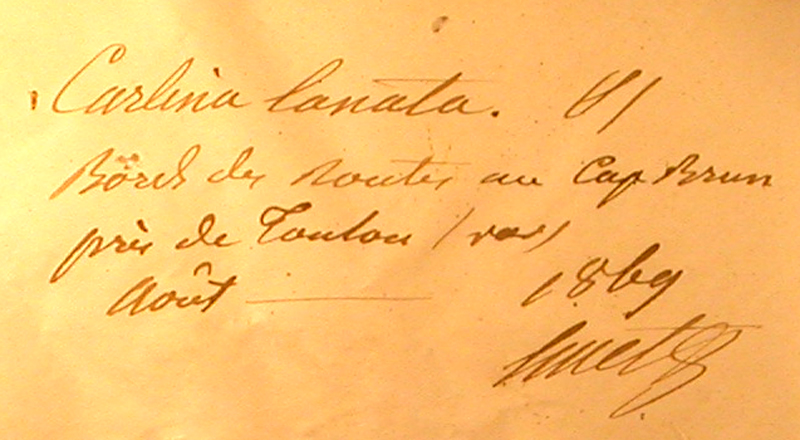 Carlina lanata.
Bords des routes au Cap Brun
près de Toulon (var)
Août 1869